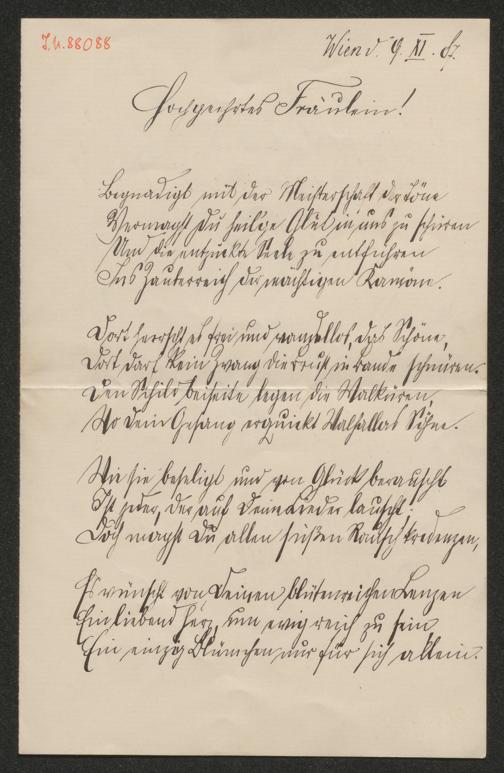 I.N. 88088
Wien d. 9. XI. 87.
Hochgeehrtes Fräulein!
Begnadigt mit der Meisterschaft der Töne
Vermagst Du heil'ge Glut in uns zu schüren
Und die entzückte Seele zu entführen
Ins Zauberreich der mächtigen Kamöne.
Dort herrscht es frei und wandellos, das Schöne,
Dort darf kein Zwang die Brust in Bande schnüren.
Den Schild beiseite legen die Walküren,
Wo Dein Gesang erquickt Walhallas Söhne.
Wie sie beseligt und von Glück berauscht
Ist jeder, der auf Deine Lieder lauscht.
Doch magst Du allen süßen Rausch kredenzen,
Es wünscht von Deinen blütenreichen Lenzen
Ein liebend Herz, um ewig reich zu sein
Ein einzig Blümchen nur für sich allein.